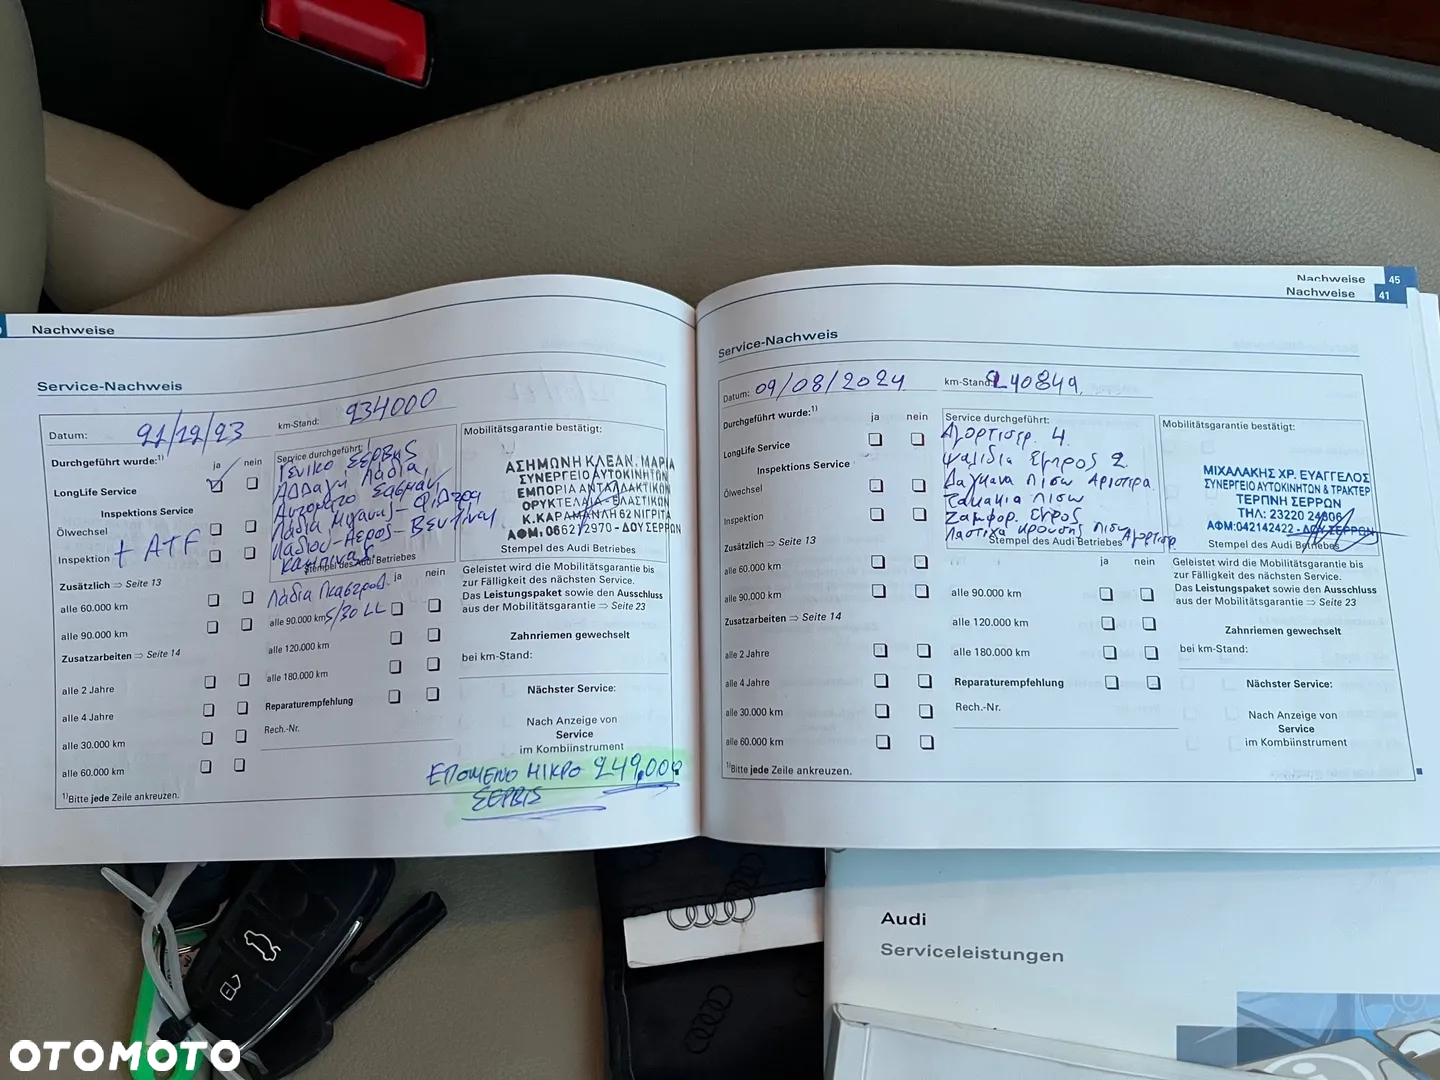 Nachweise
Service-Nachweis
Datum: 21/12/23
km-Stand: 234000
Durchgeführt wurde:¹⁾
ja nein
LongLife Service
Inspektions Service
Ölwechsel
Inspektion
+ ATF
Zusätzlich ⇒ Seite 13
alle 60.000 km
alle 90.000 km
Zusatzarbeiten ⇒ Seite 14
alle 2 Jahre
alle 4 Jahre
alle 30.000 km
alle 60.000 km
¹⁾Bitte jede Zeile ankreuzen.
Service durchgeführt:
Γενικο Σέρβις
Αλλαγή Λάδια,
Αυτοματο Σασμαν,
Λάδια Μηχανής - Φιλτρα
Λαδιου - Αερος - Βενζίνας
Καμπίνας
Stempel des Audi Betriebes
ja nein
5/30 LL
alle 90.000 km
alle 120.000 km
alle 180.000 km
Reparaturempfehlung
Rech.-Nr.
Mobilitätsgarantie bestätigt:
ΑΣΗΜΩΝΗ ΚΛΕΑΝ. ΜΑΡΙΑ
ΣΥΝΕΡΓΕΙΟ ΑΥΤΟΚΙΝΗΤΩΝ
ΕΜΠΟΡΙΑ ΑΝΤΑΛΛΑΚΤΙΚΩΝ
ΟΡΥΚΤΕΛΑΙΑ - ΕΛΑΣΤΙΚΩΝ
Κ.ΚΑΡΑΜΑΝΛΗ 62 ΝΙΓΡΙΤΑ
ΑΦΜ: - ΔΟΥ ΣΕΡΡΩΝ
Stempel des Audi Betriebes
Geleistet wird die Mobilitätsgarantie bis
zur Fälligkeit des nächsten Service.
Das Leistungspaket sowie den Ausschluss
aus der Mobilitätsgarantie ⇒ Seite 23
Zahnriemen gewechselt
bei km-Stand:
Nächster Service:
Nach Anzeige von
Service
im Kombiinstrument
ΕΠΟΜΕΝΟ ΜΙΚΡΟ 249.000
ΣΕΡΒΙΣ
Nachweise 45
Nachweise 41
Service-Nachweis
Datum: 09/08/2024
km-Stand: 240849
Durchgeführt wurde:¹⁾
ja nein
LongLife Service
Inspektions Service
Ölwechsel
Inspektion
Zusätzlich ⇒ Seite 13
alle 60.000 km
alle 90.000 km
Zusatzarbeiten ⇒ Seite 14
alle 2 Jahre
alle 4 Jahre
alle 30.000 km
alle 60.000 km
¹⁾Bitte jede Zeile ankreuzen.
Service durchgeführt:
Αμορτισερ. 4.
Ψαλίδια Εμπρος 2
Δαγκανα Πισω Αριστερα
Τακακια Πισω
Λαστιχα κρουσης Πισω Αμορτισερ
Stempel des Audi Betriebes
ja nein
alle 90.000 km
alle 120.000 km
alle 180.000 km
Reparaturempfehlung
Rech.-Nr.
Mobilitätsgarantie bestätigt:
ΜΙΧΑΛΑΚΗΣ ΧΡ. ΕΥΑΓΓΕΛΟΣ
ΣΥΝΕΡΓΕΙΟ ΑΥΤΟΚΙΝΗΤΩΝ & ΤΡΑΚΤΕΡ
ΤΕΡΠΝΗ ΣΕΡΡΩΝ
ΤΗΛ: 23220 24806
ΑΦΜ:042142422 - ΔΟΥ ΣΕΡΡΩΝ
Stempel des Audi Betriebes
Geleistet wird die Mobilitätsgarantie bis
zur Fälligkeit des nächsten Service.
Das Leistungspaket sowie den Ausschluss
aus der Mobilitätsgarantie ⇒ Seite 23
Zahnriemen gewechselt
bei km-Stand:
Nächster Service:
Nach Anzeige von
Service
im Kombiinstrument
Audi
Serviceleistungen
OTOMOTO